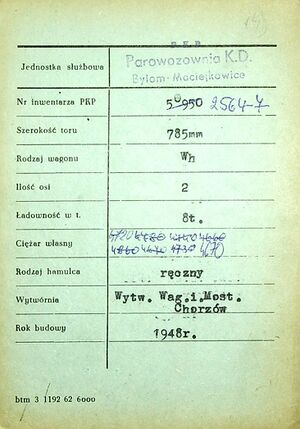 P.K.P.
Jednostka służbowa Parowozownia K.D.
Bytom-Maciejkowice
Nr inwentarza PKP 50950 2564-7
Szerokość toru 785mm
Rodzaj wagonu Wh
Ilość osi 2
Ładowność w t. 8t.
Ciężar własny 4670
Rodzaj hamulca ręczny
Wytwórnia Wytw. Wag.i.Most.
Chorzów
Rok budowy 1948r.
btm 3 1192 62 6000